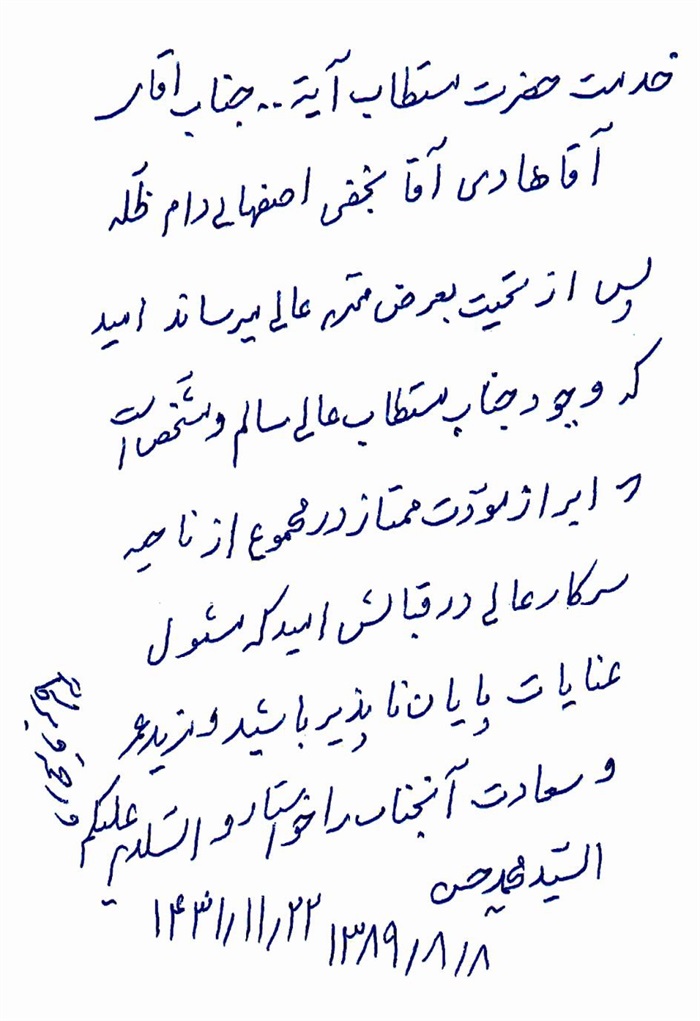 خدمت حضرت مستطاب آیة.. جناب آقای
آقا هادی آقا نجفی اصفهانی دام ظله
پس از تحیت بعرض محترم عالی میرساند امید
که وجود جناب مستطاب عالی سالم و مشخص است
ابراز مودّت ممتاز در مجموع از ناحیه
سرکار عالی در قبالش امید که مشمول
عنایات پایان ناپذیر باشید و مزید عمر
و سعادت آنجناب را خواستار و السّلام علیکم
و رحمة و برکاته
السیّد محمد حسن
۱۴۳۱/۱۱/۲۲
۱۳۸۹/۸/۸